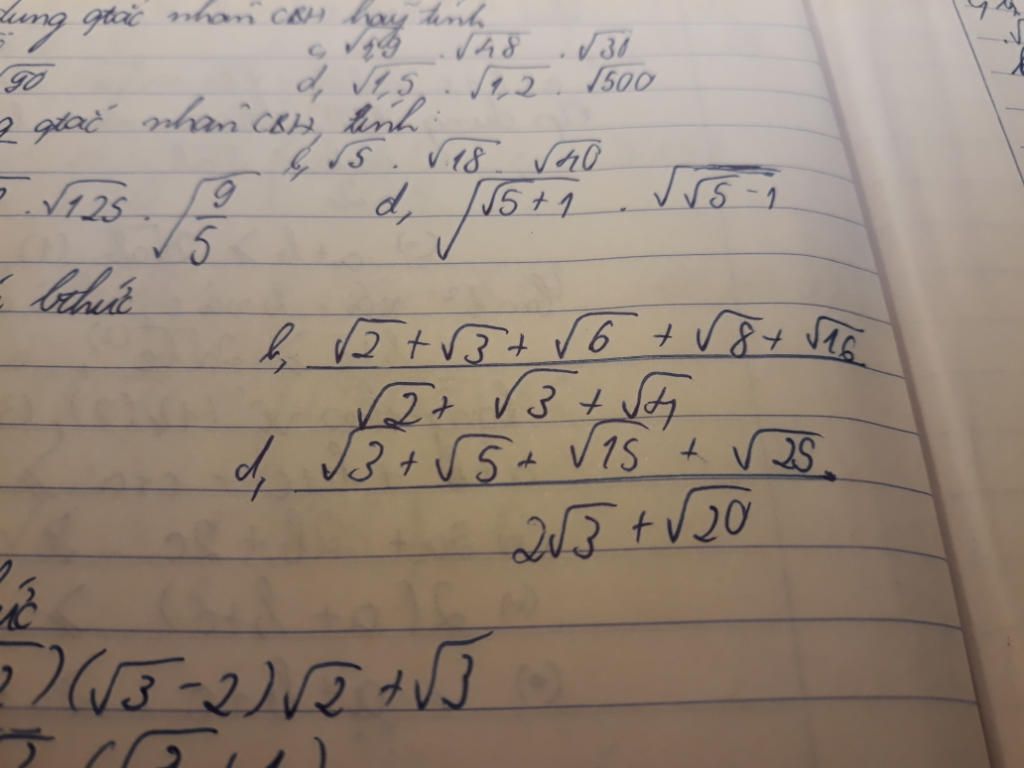 dung qtắc nhân CBH hãy tính
c, √49 . √48 . √30
√90 d, √1,5 . √1,2 . √500
qtắc nhân CBH, tính:
b, √5 . √18 . √40
. √125 . √(9/5) d, √(√5+1) . √(√5-1)
bthức
b, (√2 + √3 + √6 + √8 + √16)/(√2 + √3 + √4)
d, (√3 + √5 + √15 + √25)/(2√3 + √20)
)(√3 - 2)√2 + √3